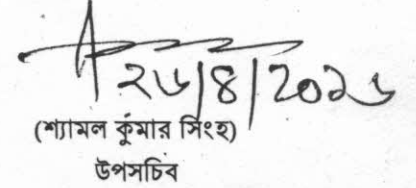 ২৬/৪/২০১৬
(শ্যামল কুমার সিংহ)
উপসচিব